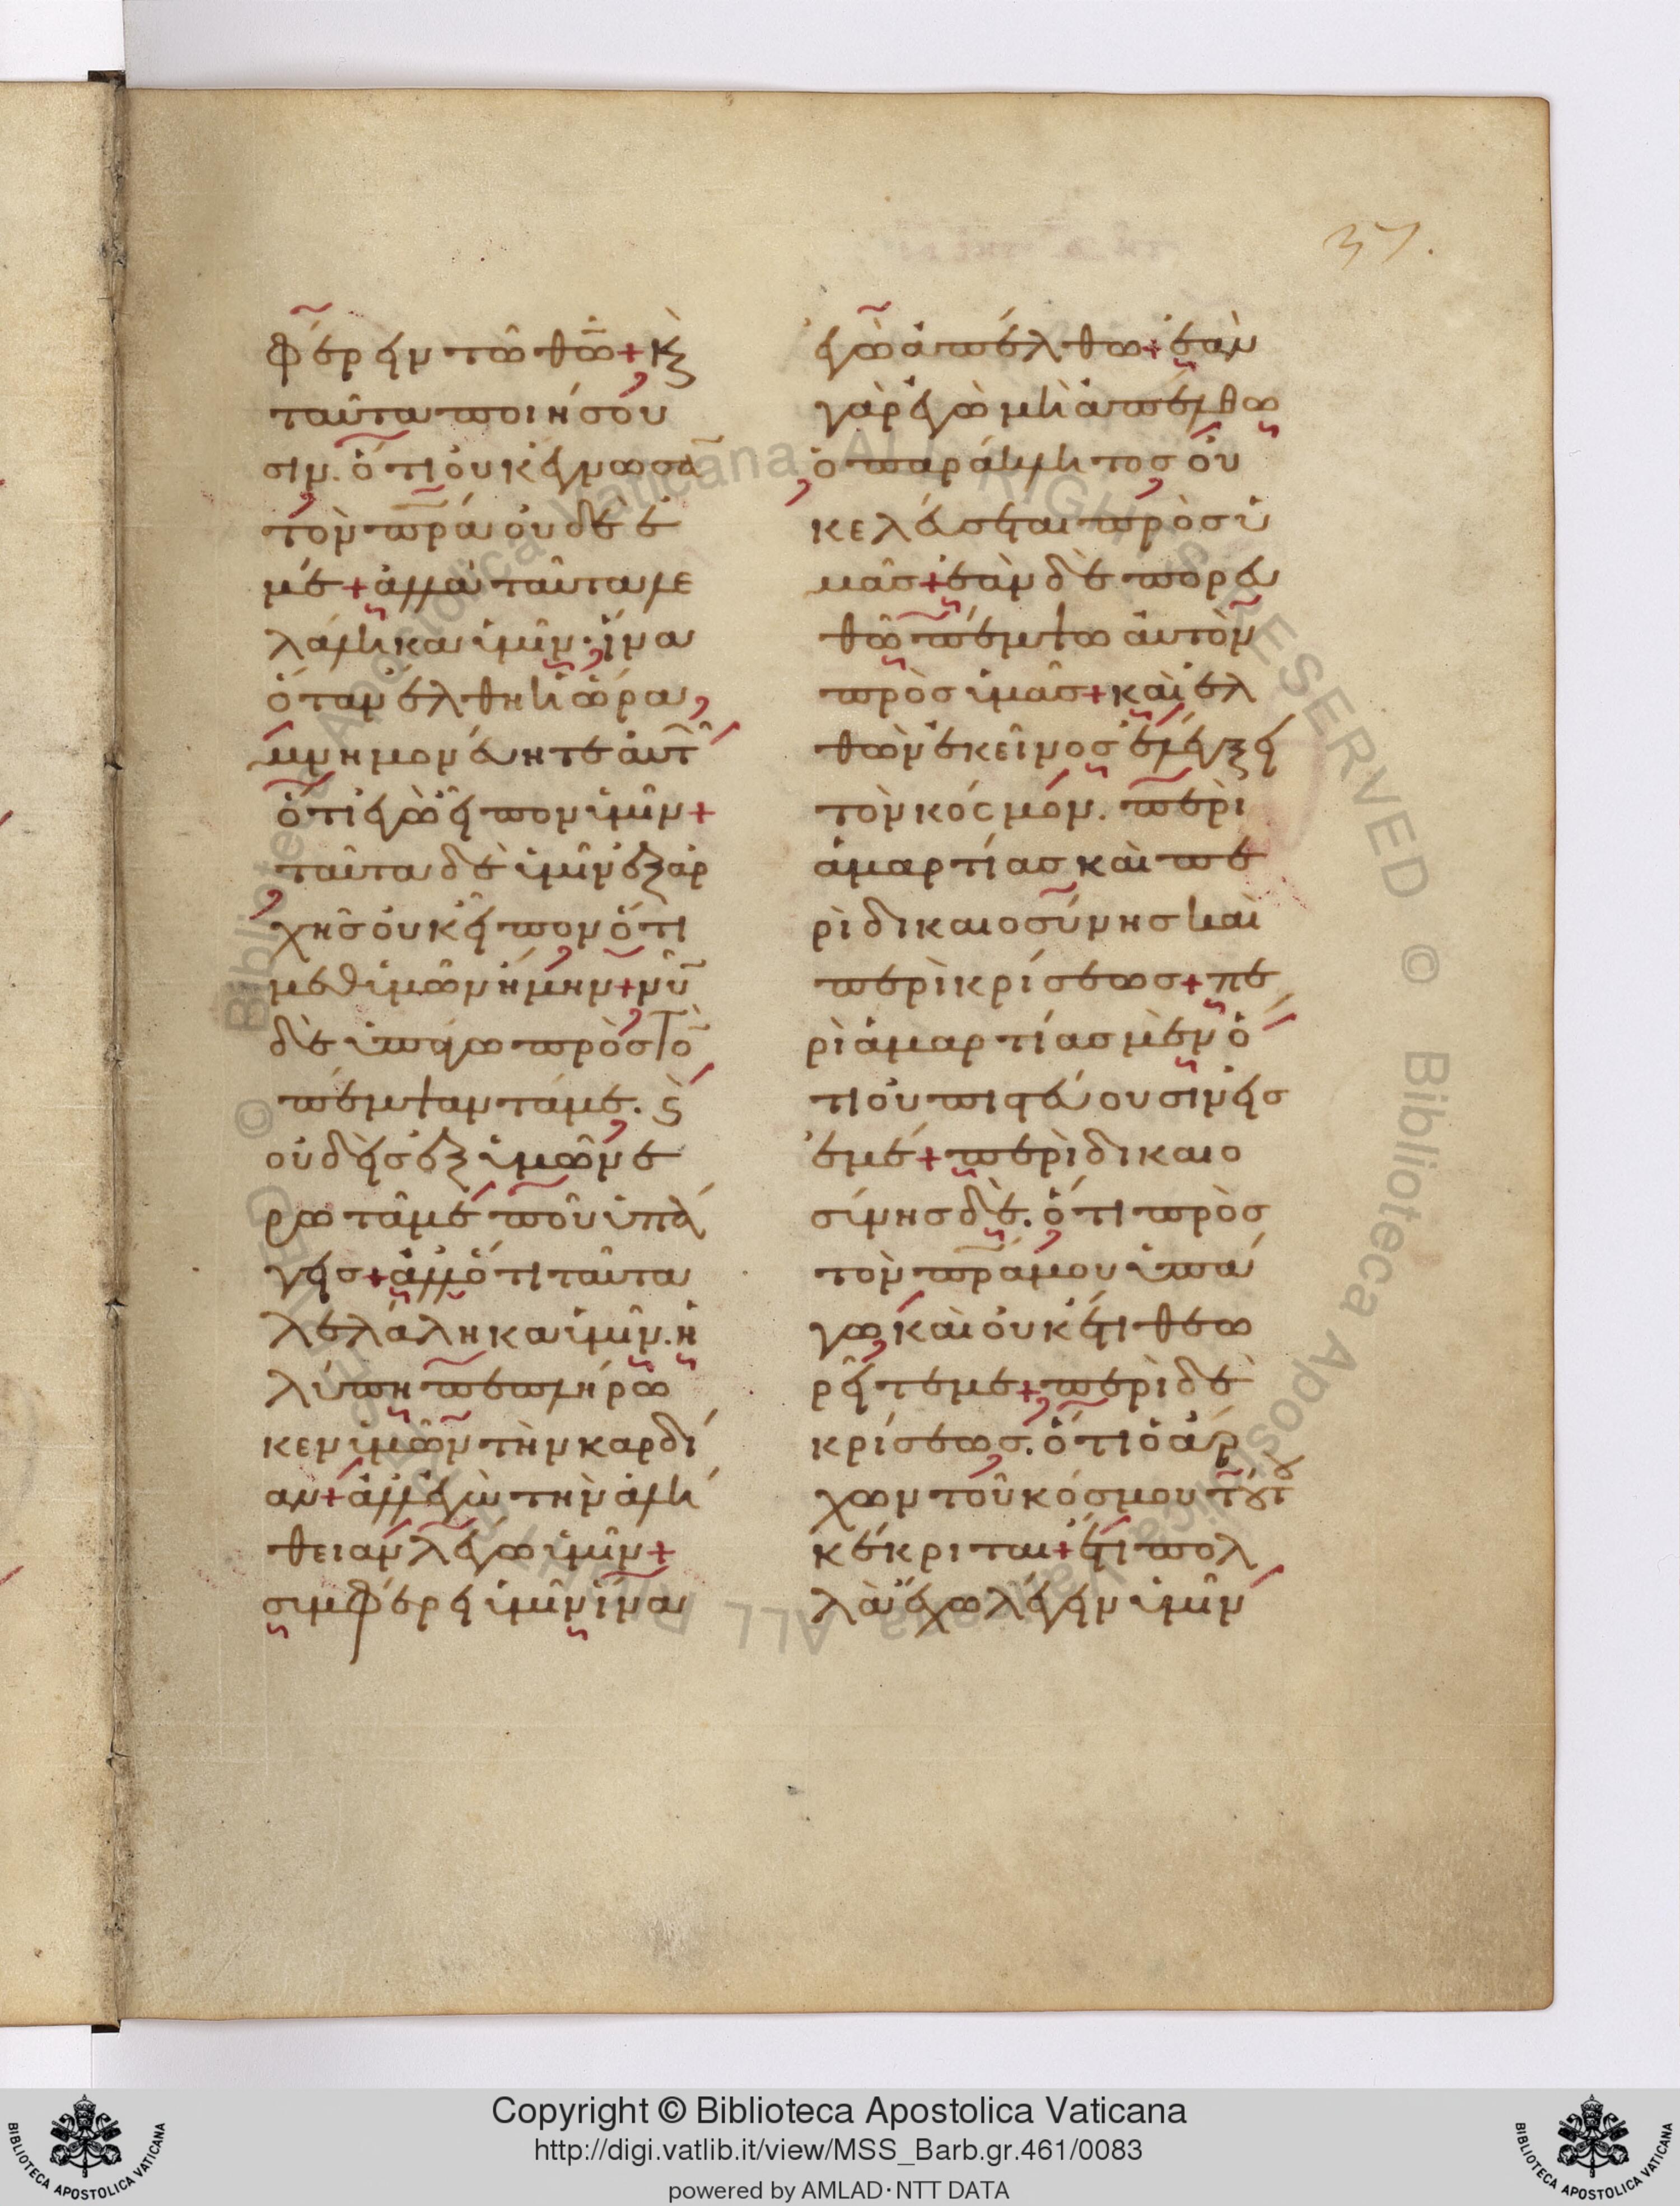 37.
φέρειν τῶ θῶ + κ
ταῦτα ποιήσου
σιν. ὅτι οὐκ ἔγνωσα
τὸν πρα οὐδὲ ἐ
μέ + ἀλλὰ ταῦτα λε
λάληκα ὑμῖν. ἵνα
ὅταν ἔλθη ἡ ὥρα,
μνημονεύητε αὐτ
ὅτι ἐγὼ εἶπον ὑμῖν +
ταῦτα δὲ ὑμῖν ἐξ ἀρ
χῆς οὐκ εἶπον ὅτι
μεθ ὑμῶν ἤμην + νῦ
δὲ ὑπάγω πρὸς τὸ
πέμψαντά με. ϛ
οὐδεὶς ἐξ ὑμῶν ἐ
ρωτᾶ με ποῦ ὑπά
γεις + ἀλλ ὅτι ταῦτα
λελάληκα ὑμῖν. ἡ
λύπη πεπλήρω
κεν ὑμῶν τὴν καρδί
αν + ἀλλ ἐγὼ τὴν ἀλή
θειαν λέγω ὑμῖν +
συμφέρει ὑμῖν ἵνα
ἐγὼ ἀπέλθω + ἐὰν
γὰρ ἐγὼ μὴ ἀπέλθω
ὁ παράκλητος οὐ
κ ελεύσεται πρὸς ὑ
μᾶς + ἐὰν δὲ πορευ
θῶ πέμψω αὐτὸν
πρὸς ὑμᾶς + καὶ ἐλ
θὼν ἐκεῖνος ἐλέγξει
τὸν κόσμον. περὶ
ἁμαρτίας καὶ πε
ρὶ δικαιοσύνης καὶ
περὶ κρίσεως + πε
ρὶ ἁμαρτίας μὲν ὅ
τι οὐ πιστεύουσιν εἰς
ἐμέ + περὶ δικαιο
σύνης δὲ. ὅτι πρὸς
τὸν πρα μου ὑπά
γω, καὶ οὐκ ἔτι θεω
ρεῖτέ με + περὶ δὲ
κρίσεως. ὅτι ὁ ἄρ
χων τοῦ κόσμου τούτ
κέκριται + ἔτι πολ
λὰ ἔχω λέγειν ὑμῖν
Copyright © Biblioteca Apostolica Vaticana
http://digi.vatlib.it/view/MSS_Barb.gr.461/0083
powered by AMLAD·NTT DATA
BIBLIOTECA APOSTOLICA VATICANA
BIBLIOTECA APOSTOLICA VATICANA